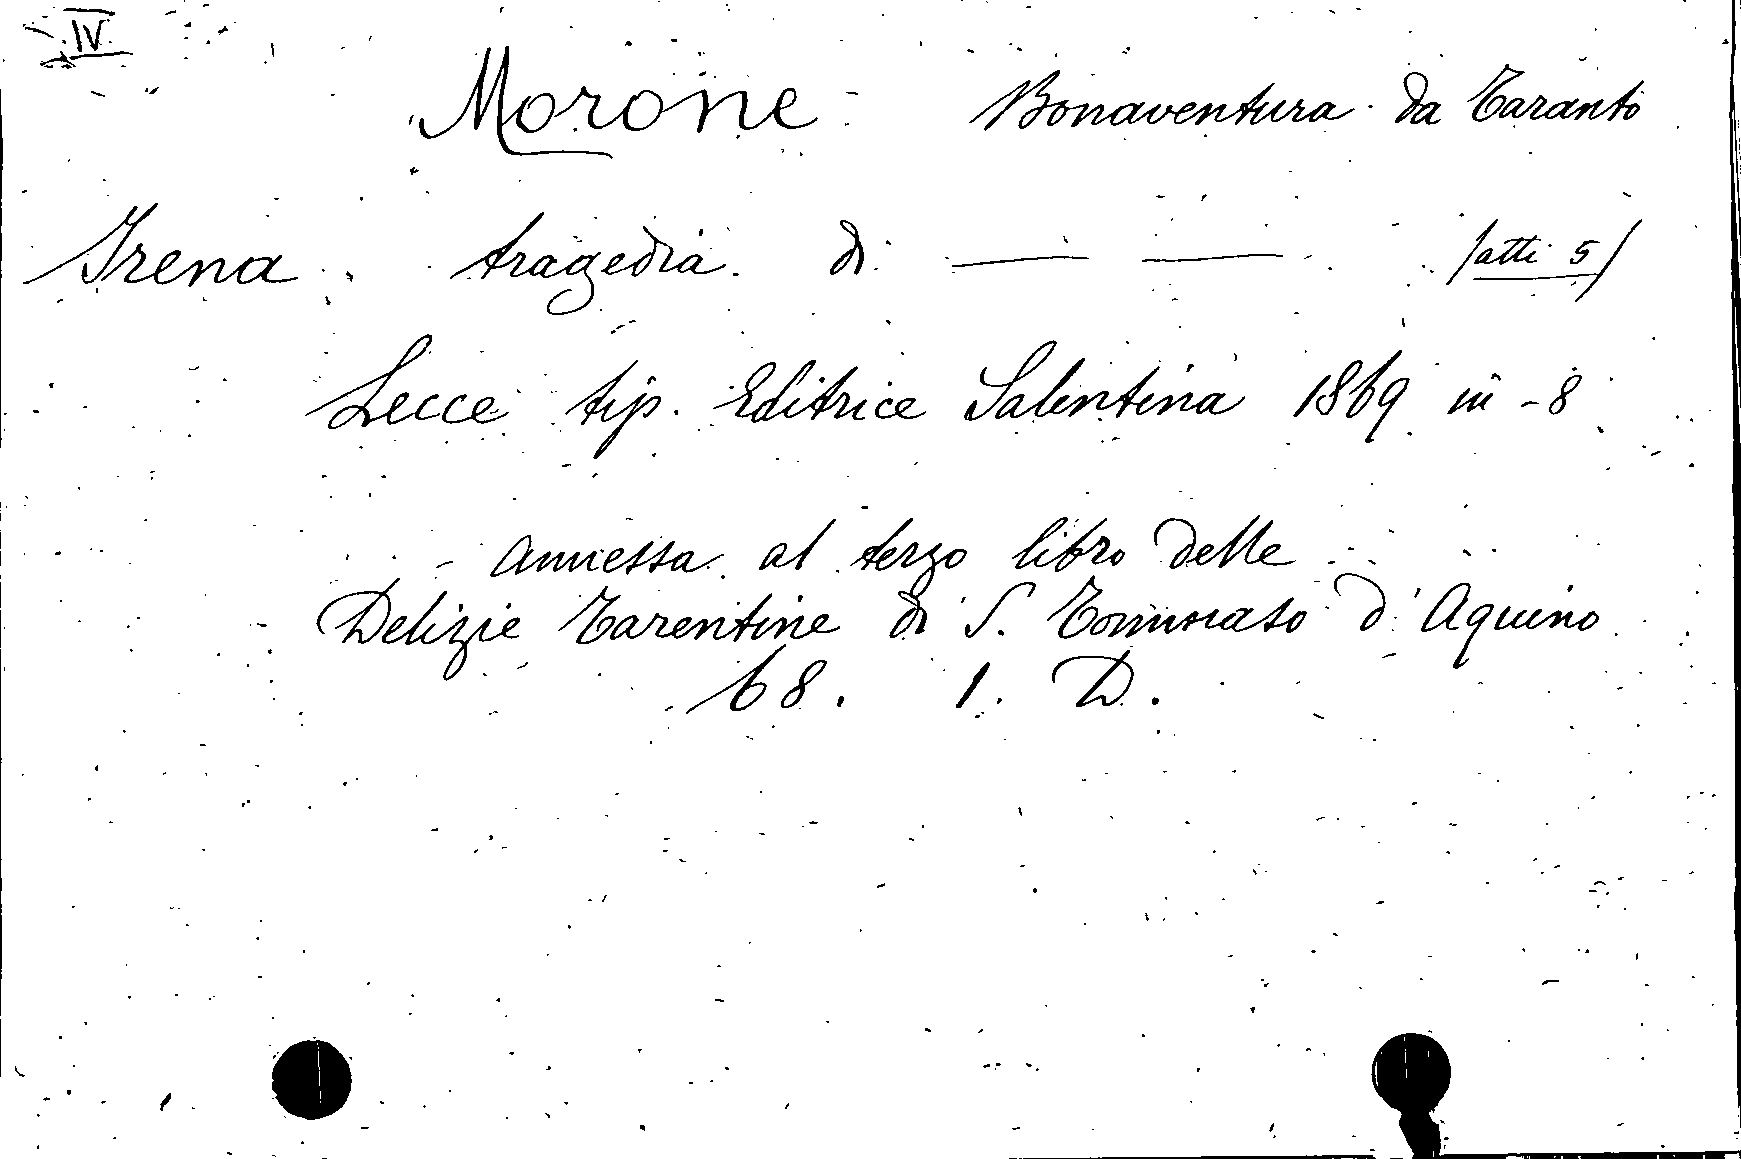 IV
Morone Bonaventura da Taranto
Irena tragedia di — — /atti 5/
Lecce tip. Editrice Salentina 1869 in-8
annessa al terzo libro delle
Delizie Tarentine di S. Tommaso d'Aquino
68. 1. D.